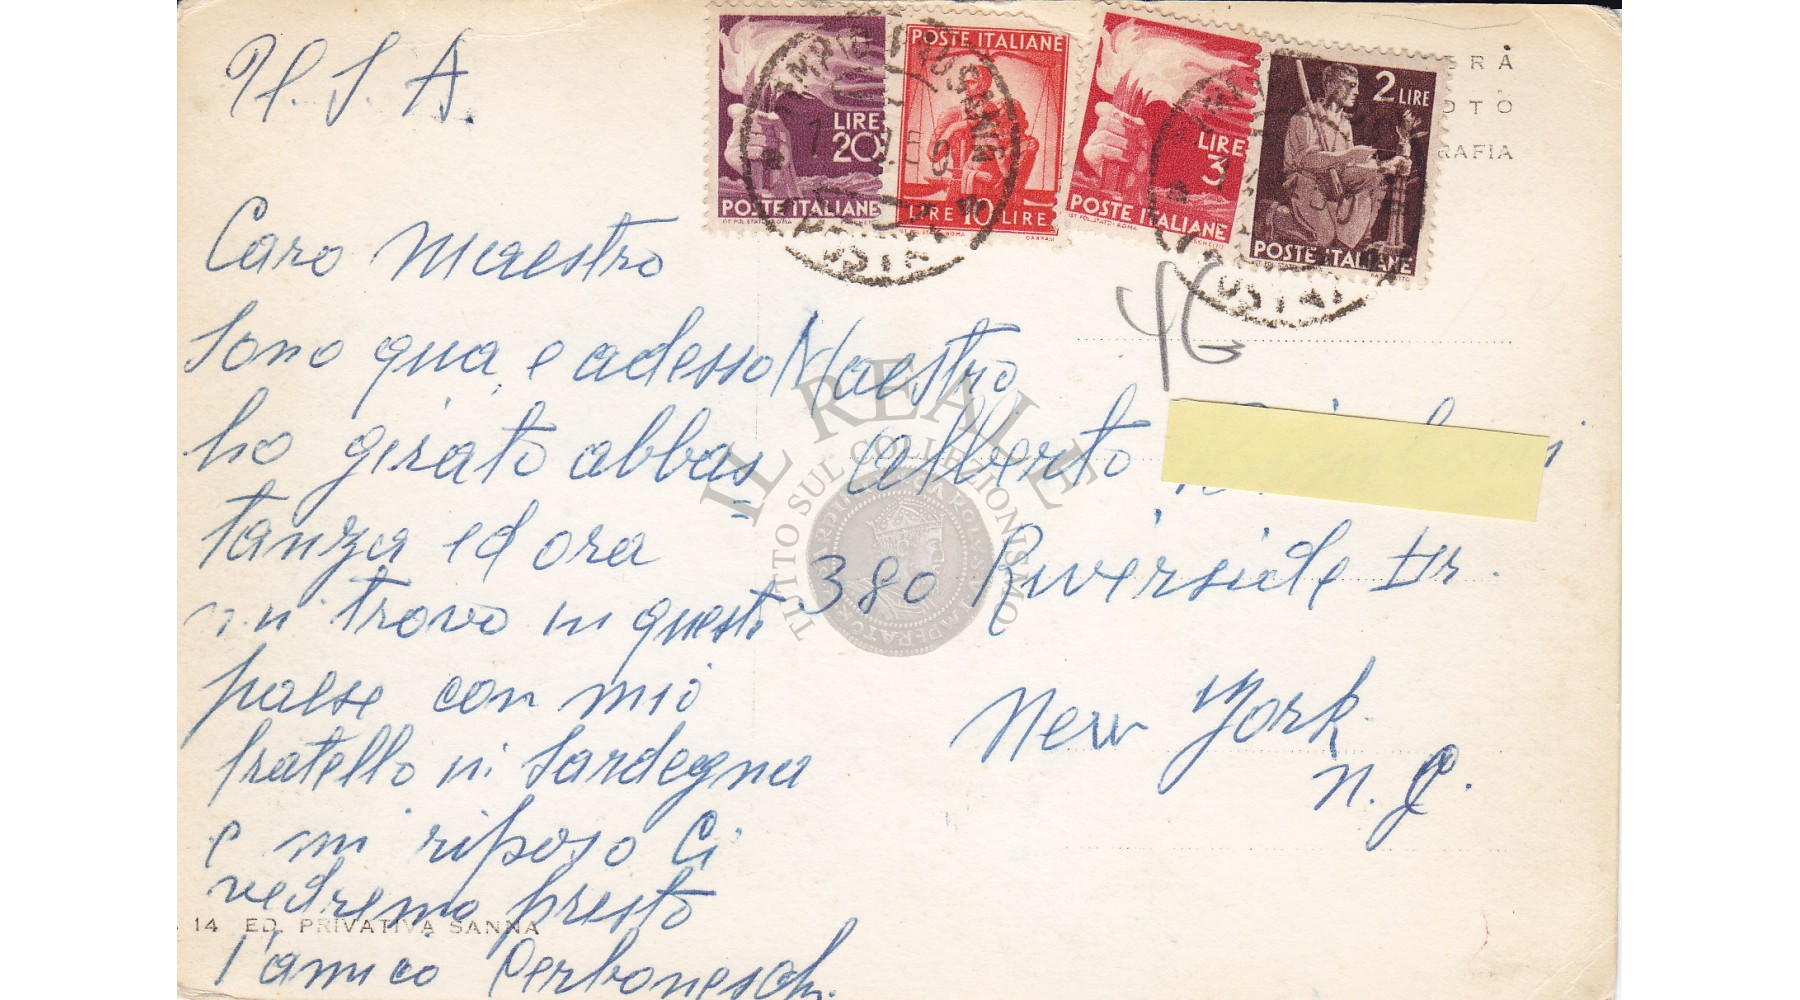 U. S. A.
LIRE
20
POSTE ITALIANE
POSTE ITALIANE
LIRE 10 LIRE
LIRE
3
POSTE ITALIANE
2 LIRE
POSTE ITALIANE
RAFIA
Caro Maestro
Sono qua e adesso
ho girato abbas=
tanza ed ora
mi trovo in questo
paese con mio
fratello in Sardegna
e mi riposo Ci
vedremo presto
l'amico
Maestro
Alberto
380 Riverside Dr.
New York
N. Y.
14 ED. PRIVATIVA SANNA
IL REALE
TUTTO SUL COLLEZIONISMO